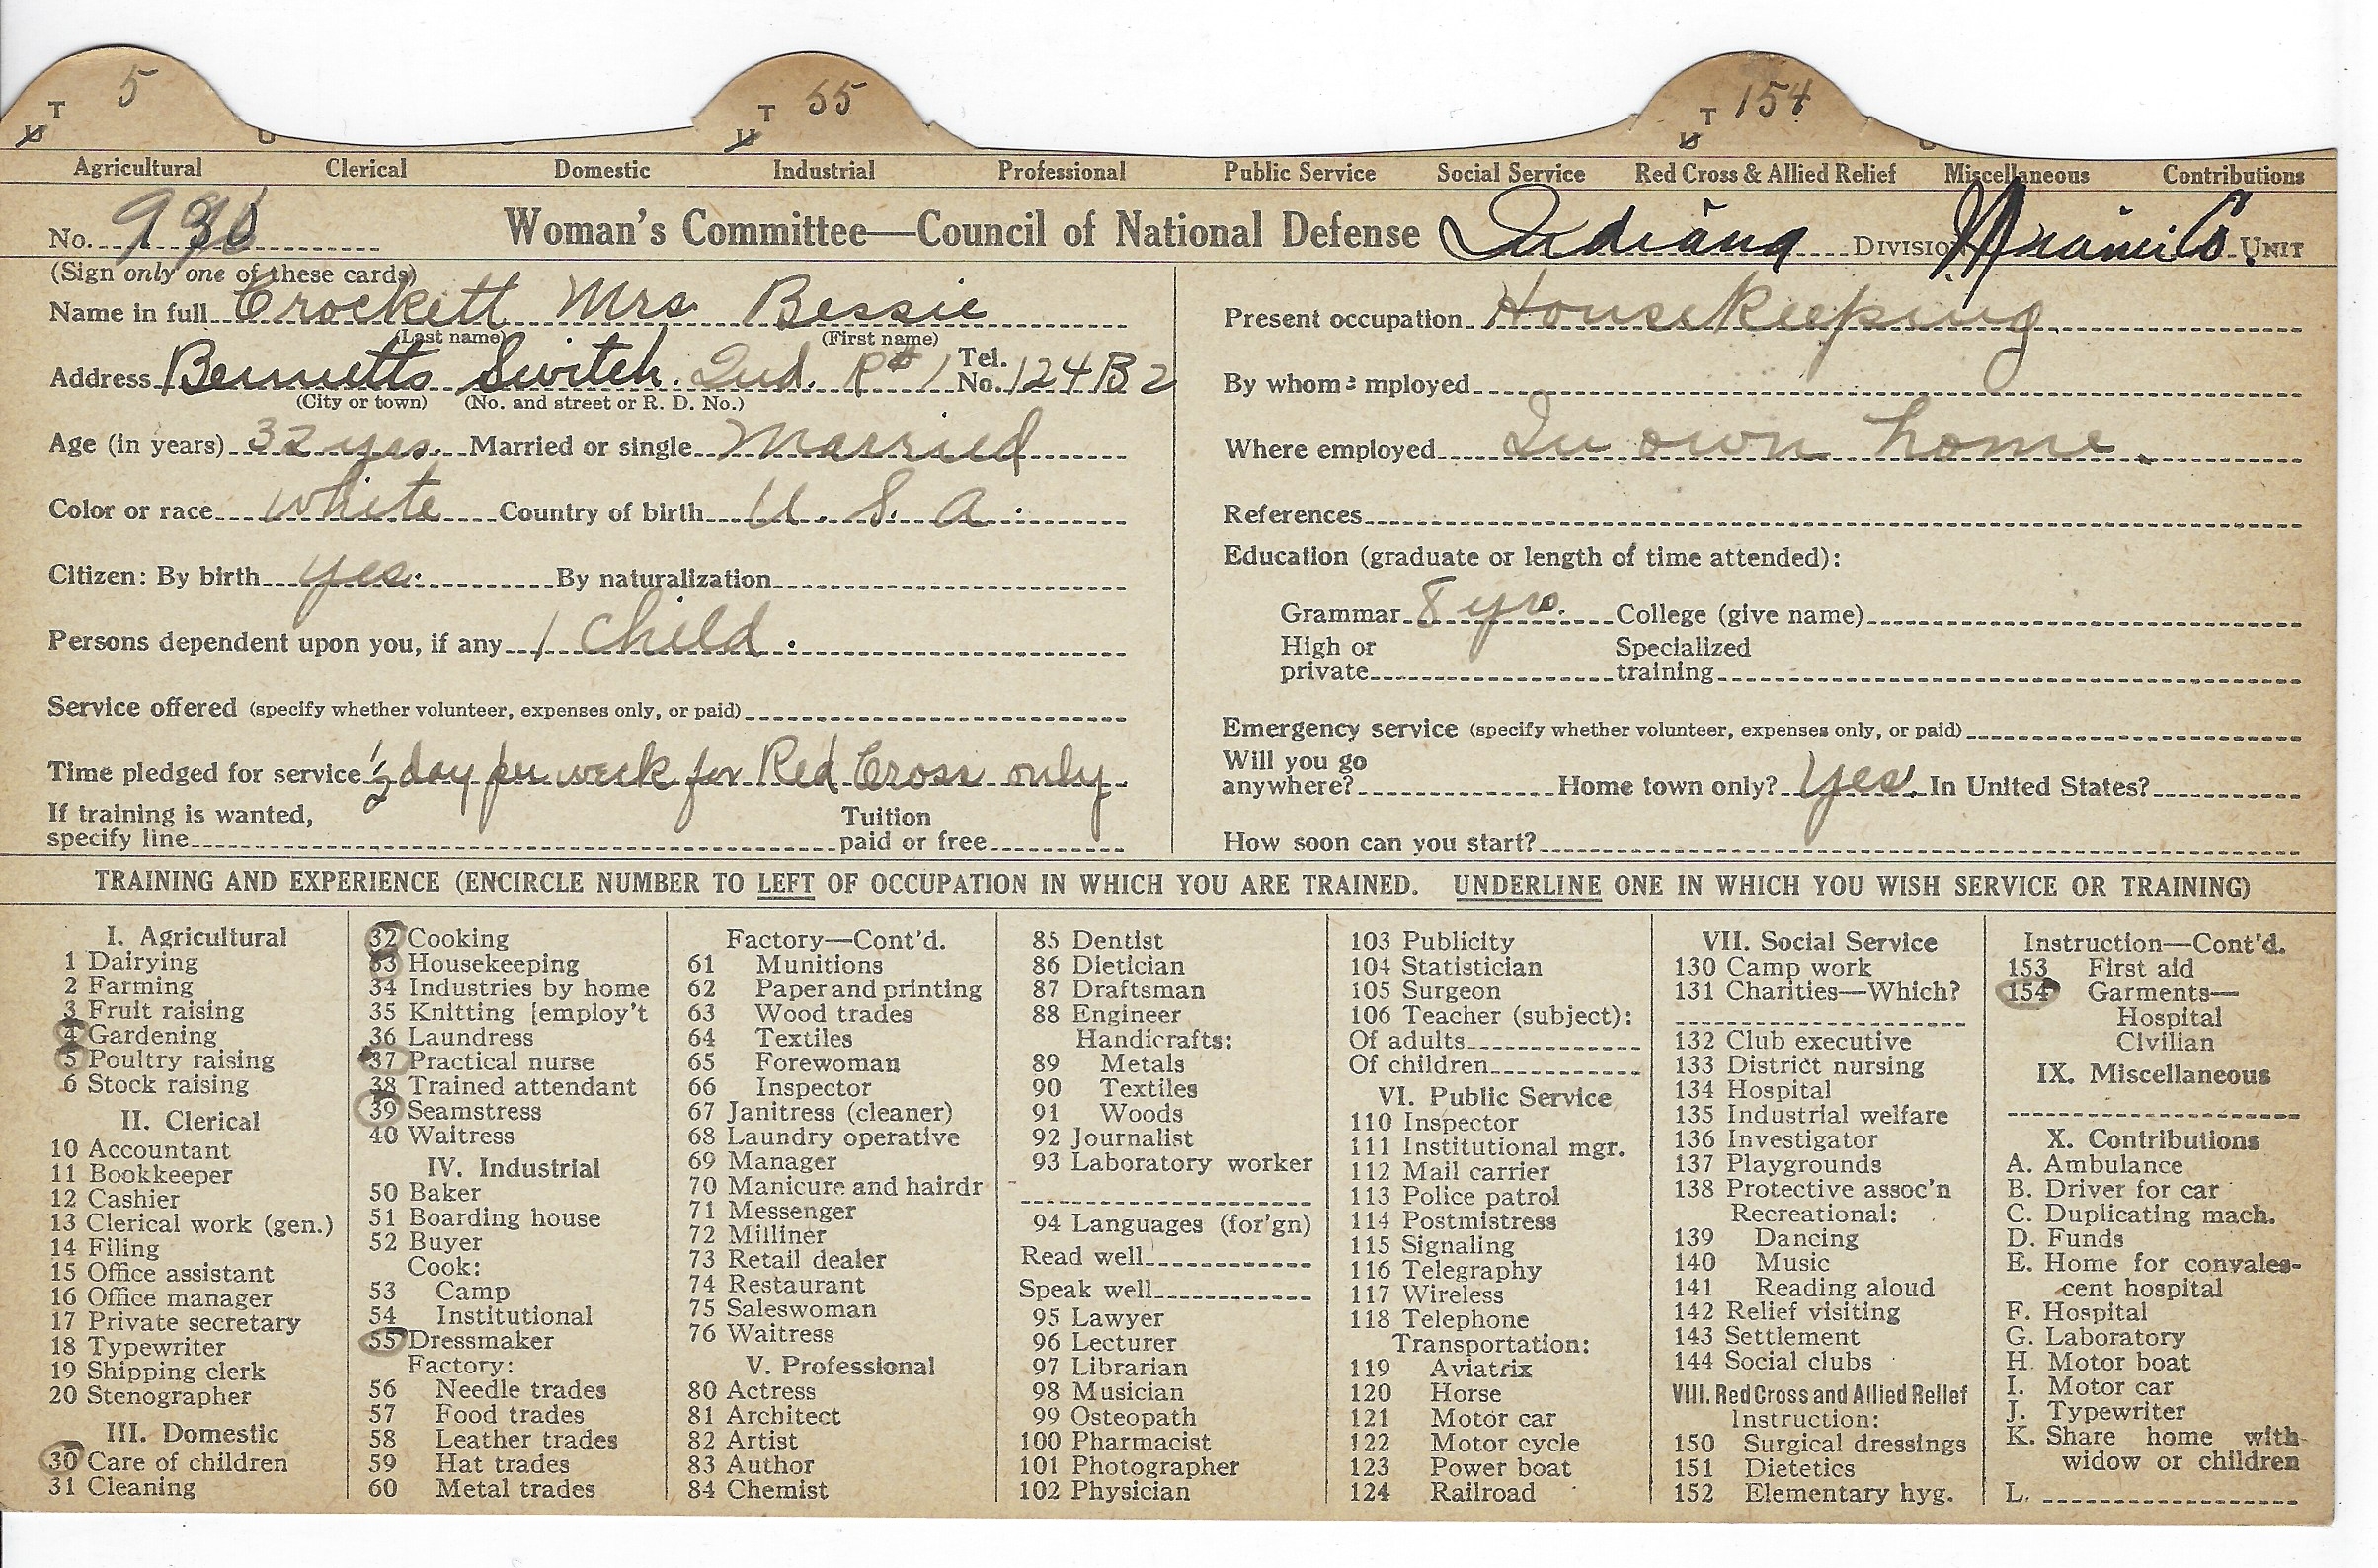 5 55 154
T T T
U U U
Agricultural Clerical Domestic Industrial Professional Public Service Social Service Red Cross & Allied Relief Miscellaneous Contributions
No. Woman's Committee—Council of National Defense Indiana Division Miami Co. Unit
(Sign only one of these cards)
Name in full Crockett Mrs Bessie
(Last name) (First name)
Address Bennetts Switch. Ind. R#1 Tel. No. 124 B 2
(City or town) (No. and street or R. D. No.)
Age (in years) 32 yrs. Married or single Married
Color or race white Country of birth U. S. A.
Citizen: By birth yes. By naturalization
Persons dependent upon you, if any 1 Child.
Service offered (specify whether volunteer, expenses only, or paid)
Time pledged for service 1/2 day per week for Red Cross only
If training is wanted,
specify line
Tuition
paid or free
Present occupation Housekeeping
By whom employed
Where employed In own home.
References
Education (graduate or length of time attended):
Grammar 8 yrs. College (give name)
High or
private
Specialized
training
Emergency service (specify whether volunteer, expenses only, or paid)
Will you go
anywhere? Home town only? Yes. In United States?
How soon can you start?
TRAINING AND EXPERIENCE (ENCIRCLE NUMBER TO LEFT OF OCCUPATION IN WHICH YOU ARE TRAINED. UNDERLINE ONE IN WHICH YOU WISH SERVICE OR TRAINING)
I. Agricultural
1 Dairying
2 Farming
3 Fruit raising
4 Gardening
5 Poultry raising
6 Stock raising
II. Clerical
10 Accountant
11 Bookkeeper
12 Cashier
13 Clerical work (gen.)
14 Filing
15 Office assistant
16 Office manager
17 Private secretary
18 Typewriter
19 Shipping clerk
20 Stenographer
III. Domestic
30 Care of children
31 Cleaning
32 Cooking
33 Housekeeping
34 Industries by home
35 Knitting [employ't
36 Laundress
37 Practical nurse
38 Trained attendant
39 Seamstress
40 Waitress
IV. Industrial
50 Baker
51 Boarding house
52 Buyer
Cook:
53 Camp
54 Institutional
55 Dressmaker
Factory:
56 Needle trades
57 Food trades
58 Leather trades
59 Hat trades
60 Metal trades
Factory—Cont'd.
61 Munitions
62 Paper and printing
63 Wood trades
64 Textiles
65 Forewoman
66 Inspector
67 Janitress (cleaner)
68 Laundry operative
69 Manager
70 Manicure and hairdr
71 Messenger
72 Milliner
73 Retail dealer
74 Restaurant
75 Saleswoman
76 Waitress
V. Professional
80 Actress
81 Architect
82 Artist
83 Author
84 Chemist
85 Dentist
86 Dietician
87 Draftsman
88 Engineer
Handicrafts:
89 Metals
90 Textiles
91 Woods
92 Journalist
93 Laboratory worker
94 Languages (for'gn)
Read well
Speak well
95 Lawyer
96 Lecturer
97 Librarian
98 Musician
99 Osteopath
100 Pharmacist
101 Photographer
102 Physician
103 Publicity
104 Statistician
105 Surgeon
106 Teacher (subject):
Of adults
Of children
VI. Public Service
110 Inspector
111 Institutional mgr.
112 Mail carrier
113 Police patrol
114 Postmistress
115 Signaling
116 Telegraphy
117 Wireless
118 Telephone
Transportation:
119 Aviatrix
120 Horse
121 Motor car
122 Motor cycle
123 Power boat
124 Railroad
VII. Social Service
130 Camp work
131 Charities—Which?
132 Club executive
133 District nursing
134 Hospital
135 Industrial welfare
136 Investigator
137 Playgrounds
138 Protective assoc'n
Recreational:
139 Dancing
140 Music
141 Reading aloud
142 Relief visiting
143 Settlement
144 Social clubs
VIII. Red Cross and Allied Relief
Instruction:
150 Surgical dressings
151 Dietetics
152 Elementary hyg.
Instruction—Cont'd.
153 First aid
154 Garments—
Hospital
Civilian
IX. Miscellaneous
X. Contributions
A. Ambulance
B. Driver for car
C. Duplicating mach.
D. Funds
E. Home for convales-
cent hospital
F. Hospital
G. Laboratory
H. Motor boat
I. Motor car
J. Typewriter
K. Share home with
widow or children
L.